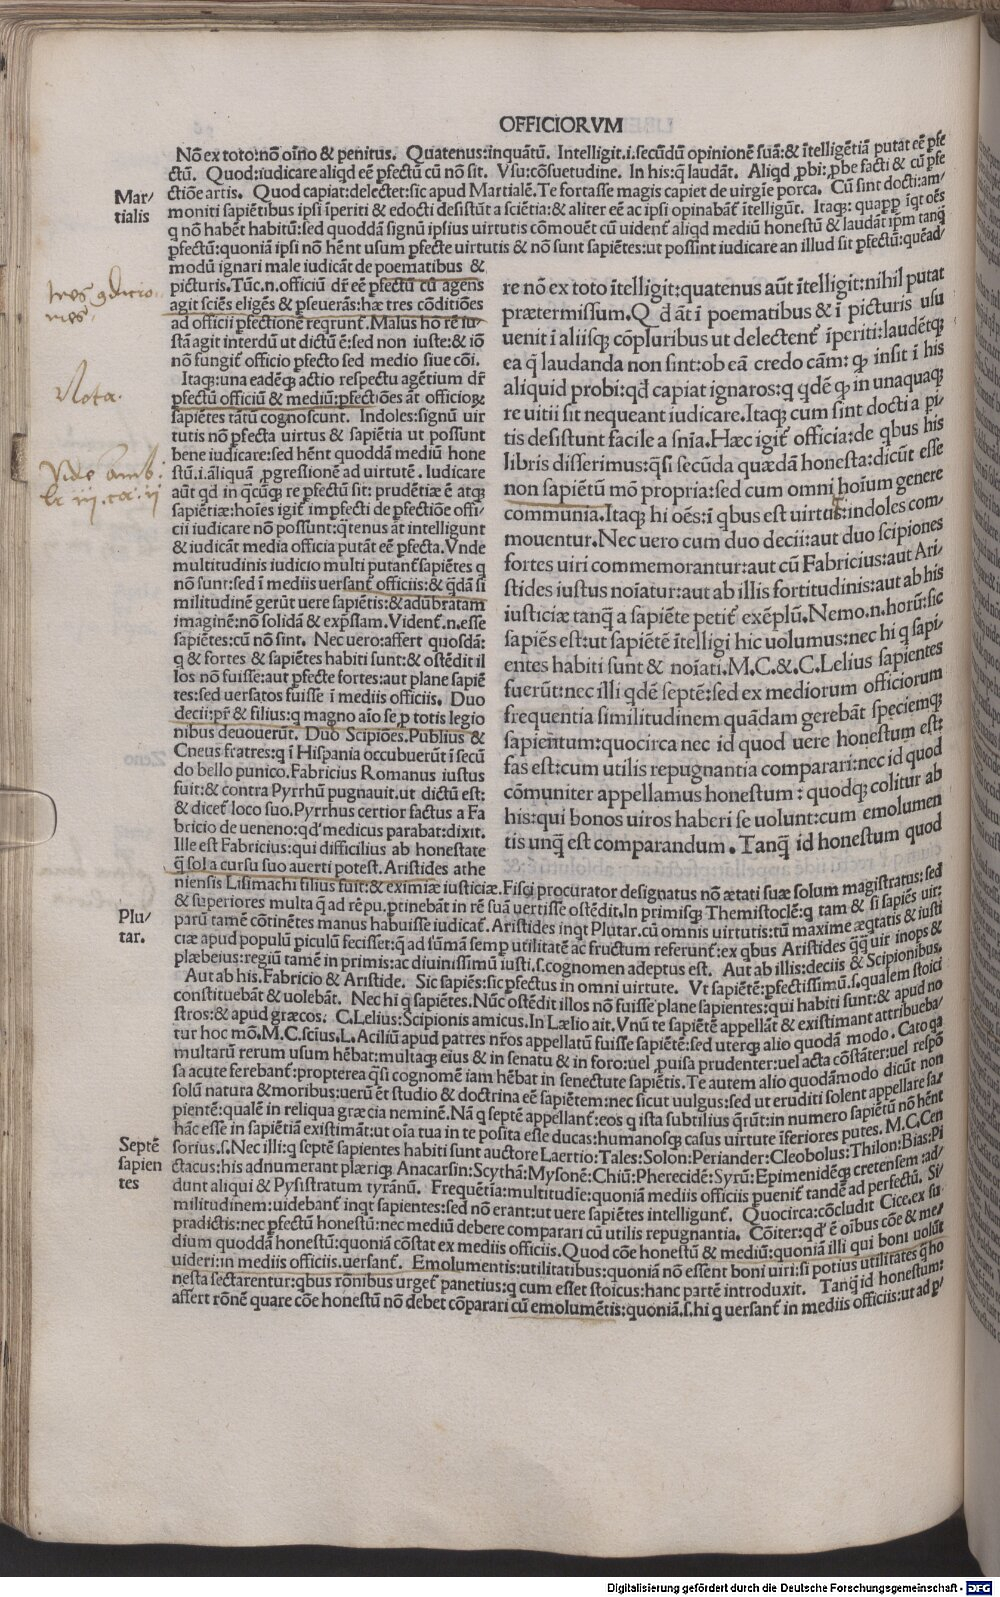 OFFICIORVM
Nõ ex toto:nõ oĩno & penitus. Quatenus:inquãtũ. Intelligit.i.secũdũ opinionẽ suã:& ĩtelligẽtiã putat eẽ ꝑfe
ctũ. Quod:iudicare aliqd eẽ ꝑfectũ cũ nõ sit. Vsu:cõsuetudine. In his:q̃ laudãt. Aliqd ꝓbi:ꝓbe facti & cũ ꝑfe
ctiõe artis. Quod capiat:delectet:sic apud Martialẽ. Te fortasse magis capiet de uirgĩe porca. Cũ sint docti:am/
moniti sapiẽtibus ipsi ĩperiti & edocti desistũt a sciẽtia:& aliter eẽ ac ipsi opinabãt̃ ĩtelligũt. Itaq;: quapp ĩqt oẽs
q nõ habẽt habitũ:sed quoddã signũ ipsius uirtutis cõmouẽt cũ uident̃ aliqd mediũ honestũ & laudãt ipm tanq̃
ꝑfectũ:quoniã ipsi nõ hẽnt usum ꝑfecte uirtutis & nõ sunt sapiẽtes:ut possint iudicare an illud sit ꝑfectũ:quẽad/
modũ ignari male iudicãt de poematibus &
picturis.Tũc.n.officiũ dr̃ eẽ ꝑfectũ cũ agens
agit sciẽs eligẽs & ꝑseuerãs:hæ tres cõditiões
ad officii ꝑfectionẽ reqrunt̃.Malus hõ rẽ iu/
stã agit interdũ ut dictũ ẽ:sed non iuste:& iõ
nõ fungit̃ officio ꝑfecto sed medio siue cõi.
Itaq;:una eadẽq; actio respectu agẽtium dr̃
ꝑfectũ officiũ & mediũ:ꝑfectiões ãt officioꝝ
sapiẽtes tãtũ cognoscunt. Indoles:signũ uir
tutis nõ ꝑfecta uirtus & sapiẽtia ut possunt
bene iudicare:sed hẽnt quoddã mediũ hone
stũ.i.aliquã ꝓgressionẽ ad uirtutẽ. Iudicare
aũt qd in q̃cũq; re ꝑfectũ sit: prudẽtiæ ẽ atq;
sapiẽtiæ:hoĩes igit̃ imꝑfecti de ꝑfectiõe offi/
cii iudicare nõ possunt:q̃tenus ãt intelligunt
& iudicãt media officia putãt eẽ ꝑfecta.Vnde
multitudinis iudicio multi putant̃ sapiẽtes q
nõ sunt:sed ĩ mediis uersant̃ officiis:& q̃dã si
militudinẽ gerũt uere sapiẽtis:&adũbratam
imaginẽ:nõ solidã & exp̃ssam.Vident̃.n.esse
sapiẽtes:cũ nõ sint. Nec uero:affert quosdã:
q & fortes & sapiẽtes habiti sunt:& ostẽdit il
los nõ fuisse:aut ꝑfecte fortes:aut plane sapiẽ
tes:sed uersatos fuisse ĩ mediis officiis. Duo
decii:pr̃ & filius:q magno aĩo se ꝓ totis legio
nibus deuouerũt. Duo Scipiões.Publius &
Cneus fratres:q ĩ Hispania occubuerũt ĩ secũ
do bello punico.Fabricius Romanus iustus
fuit:& contra Pyrrhũ pugnauit.ut dictũ est:
& dicet̃ loco suo.Pyrrhus certior factus a Fa
bricio de ueneno:qd̃ medicus parabat:dixit.
Ille est Fabricius:qui difficilius ab honestate
q̃ sol a cursu suo auerti potest.Aristides athe
re nõ ex toto ĩtelligit:quatenus aũt ĩtelligit:nihil putat
prætermissum.Q d ãt ĩ poematibus & ĩ picturis usu
uenit ĩ aliisq; cõpluribus ut delectent̃ ĩperiti:laudẽtq;
ea q̃ laudanda non sint:ob eã credo cãm: ꝙ insit ĩ his
aliquid probi:qd̃ capiat ignaros:q qdẽ ꝙ in unaquaq;
re uitii sit nequeant iudicare.Itaq; cum sint docti a pi/
tis desistunt facile a snĩa.Hæc igit̃ officia:de qbus his
libris disserimus:q̃si secũda quædã honesta:dicũt esse
non sapiẽtũ mõ propria:sed cum omni hoĩum genere
communia.Itaq; hi oẽs:ĩ qbus est uirtut̃:indoles com/
mouentur.Nec uero cum duo decii:aut duo scipiones
fortes uiri commemorantur:aut cũ Fabricius:aut Ari/
stides iustus noĩatur:aut ab illis fortitudinis:aut ab his
iusticiæ tanq̃ a sapiẽte petit̃ exẽplũ.Nemo.n.horũ:sic
sapiẽs est:ut sapiẽtẽ ĩtelligi hic uolumus:nec hi q sapi/
entes habiti sunt & noĩati.M.C.&.C.Lelius sapientes
fuerũt:nec illi qdẽ septẽ:sed ex mediorum officiorum
frequentia similitudinem quãdam gerebãt speciemq;
sapientum:quocirca nec id quod uere honestum est:
fas est:cum utilis repugnantia comparari:nec id quod
cõmuniter appellamus honestum: quodq; colitur ab
his:qui bonos uiros haberi se uolunt:cum emolumen
tis unq̃ est comparandum. Tanq̃ id honestum quod
niensis Lisimachi filius fuit:& eximiæ iusticiæ.Fisci procurator designatus nõ ætati suæ solum magistratus:sed
& superiores multa q̃ ad rẽpu.ꝑtinebãt in rẽ suã uertisse ostẽdit.In primisq; Themistoclẽ:q tam & si sapiẽs uir:
parũ tamẽ cõtinẽtes manus habuisse iudicat̃. Aristides inqt Plutar.cũ omnis uirtutis:tũ maxime æqtatis & iusti
ciæ apud populũ piculũ fecisset:q̃ ad sũmã semp utilitatẽ ac fructum referunt̃:ex qbus Aristides q̃q̃ uir inops &
plæbeius:regiũ tamẽ in primis:ac diuinissimũ iusti.s.cognomen adeptus est. Aut ab illis:deciis & Scipionibus.
Aut ab his.Fabricio & Aristide. Sic sapiẽs:sic ꝑfectus in omni uirtute. Vt sapiẽtẽ:ꝑfectissimũ.s.qualem stoici
constituebãt & uolebãt. Nec hi q sapiẽtes.Nũc ostẽdit illos nõ fuisse plane sapientes:qui habiti sunt:& apud no
stros:& apud græcos: C.Lelius:Scipionis amicus.In Lælio ait.Vnũ te sapiẽtẽ appellãt & existimant attribueba/
tur hoc mõ.M.C.scĩus.L.Aciliũ apud patres nr̃os appellatũ fuisse sapiẽtẽ:sed uterq; alio quodã modo. Cato qa
multarũ rerum usum hẽbat:multaq; eius & in senatu & in foro:uel ꝓuisa prudenter:uel acta cõstãter:uel respõ
sa acute ferebant̃:propterea q̃si cognomẽ iam hẽbat in senectute sapiẽtis.Te autem alio quodãmodo dicũt non
solũ natura & moribus:uerũ ẽt studio & doctrina eẽ sapiẽtem:nec sicut uulgus:sed ut eruditi solent appellare sa/
pientẽ:qualẽ in reliqua græcia neminẽ. Nã q septẽ appellant̃:eos q ista subtilius q̃rũt:in numero sapiẽtũ nõ hẽnt
hãc esse in sapiẽtiã existimãt:ut oĩa tua in te posita esse ducas:humanosq; casus uirtute ĩferiores putes. M.C.Cen
sorius.s.Nec illi:q septẽ sapientes habiti sunt auctore Laertio:Tales:Solon:Periander:Cleobolus:Thilon:Bias:Pi
ctacus:his adnumerant plæriq; Anacarsin:Scythã:Mysonẽ:Chiũ:Pherecidẽ:Syrũ:Epimenidẽq; cretensem:ad/
dunt aliqui & Pysistratum tyrãnũ. Frequẽtia:multitudĩe:quoniã mediis officiis puenit̃ tandẽ ad perfectũ. Si/
militudinem:uidebant̃ inqt sapientes:sed nõ erant:ut uere sapiẽtes intelligunt̃. Quocirca:cõcludit Cice.ex su/
pradictis:nec ꝑfectũ honestũ:nec mediũ debere comparari cũ utilis repugnantia. Cõiter:qd̃ ẽ oĩbus cõe & me/
dium quoddã honestũ:quoniã cõstat ex mediis officiis.Quod cõe honestũ & mediũ:quoniã illi qui boni uolũt
uideri:in mediis officiis.uersant̃. Emolumentis:utilitatibus:quoniã nõ essent boni uiri:si potius utilitates q̃ ho
nesta sectarentur:qbus rõnibus urget̃ panetius:q cum esset stoicus:hanc partẽ introduxit. Tanq̃ id honestum:
affert rõnẽ quare cõe honestũ nõ debet cõparari cũ emolumẽtis:quoniã.s.hi q uersant̃ in mediis officiis:ut ad ꝑ/
Mar/
tialis
tres condicio
nes.
Nota.
Vide amb:
Plu/
tar.
Septẽ
sapien
tes
Digitalisierung gefördert durch die Deutsche Forschungsgemeinschaft - DFG